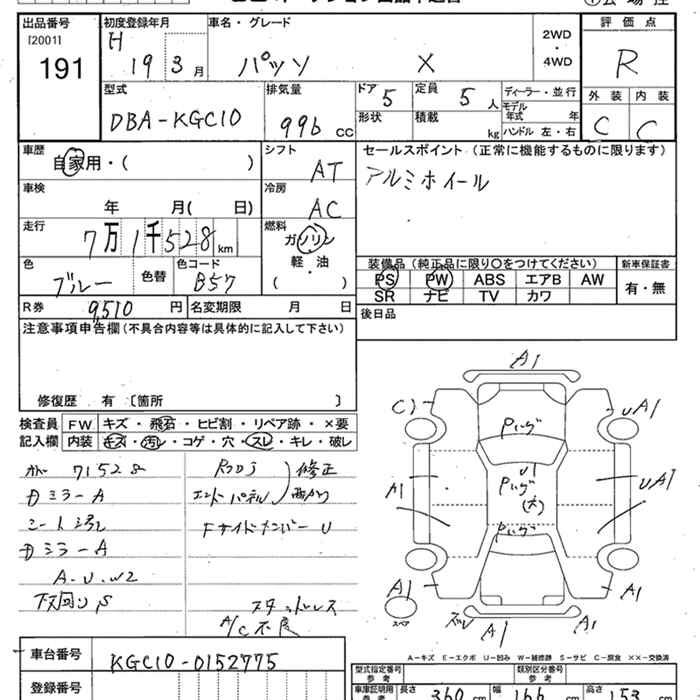 出品番号
[2001]
191
初度登録年月
H 19 3 月
車名・グレード
パッソ X
2WD
・
4WD
評価点
R
型式
DBA-KGC10
排気量
996 cc
ドア 5
定員 5 人
形状
積載 kg
ディーラー・並行
モデル年式 年
ハンドル 左・右
外装 内装
C C
車歴
自家用・( )
シフト
AT
セールスポイント(正常に機能するものに限ります)
アルミホイール
車検
年 月( 日)
冷房
AC
走行
7万1千528km
燃料
ガソリン
軽・油
( )
色
ブルー
色替
色コード
B57
装備品(純正品に限り○をつけてください)
PS PW ABS エアB AW
SR ナビ TV カワ
新車保証書
有・無
R券 9,510 円
名変期限 月 日
後日品
注意事項申告欄(不具合内容等は具体的に記入して下さい)
修復歴 有〔箇所 〕
検査員
記入欄
FW キズ・飛石・ヒビ割・リペア跡・×要
内装 キズ・汚レ・コゲ・穴・スレ・キレ・破レ
71528
ミラーA
シート
ミラーA
A・U・W2
下回りS
修正
エンドパネル
Fサイドメンバー U
スタッドレス
A/C不良
A1
C1
UA1
A1
U1
UA1
A1
A1
A1
A1
A…キズ E…エクボ U…凹み W…補修跡 S…サビ C…腐食 ××…交換済
車台番号
KGC10-0152775
登録番号
型式指定番号
参考
類別区分番号
参考
車庫証明用
参考
長さ 360 cm
幅 166 cm
高さ 153 cm